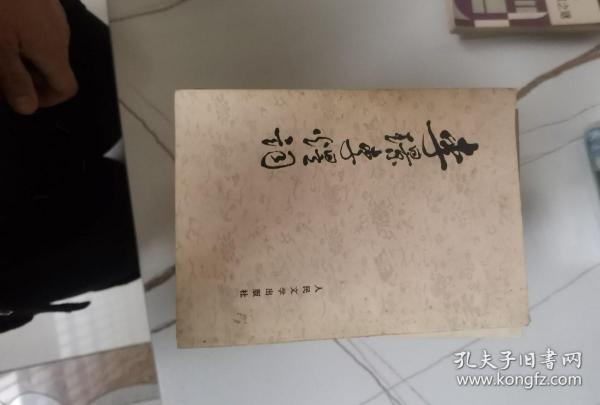 李璟李煜詞
人民文学出版社
孔夫子旧书网
www.kongfz.com